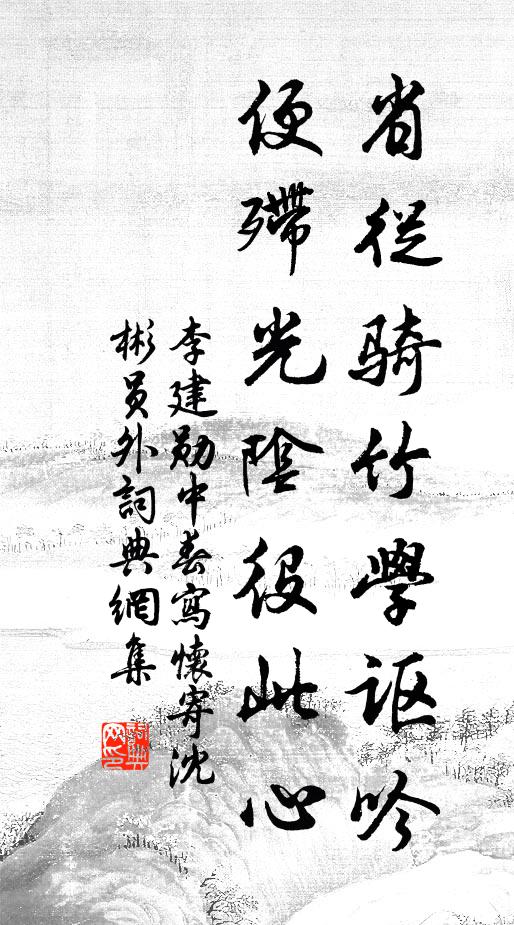 省從騎竹學謳吟
便殢光陰役此心
李建勋中春寫懷寄沈
彬員外詞典網集